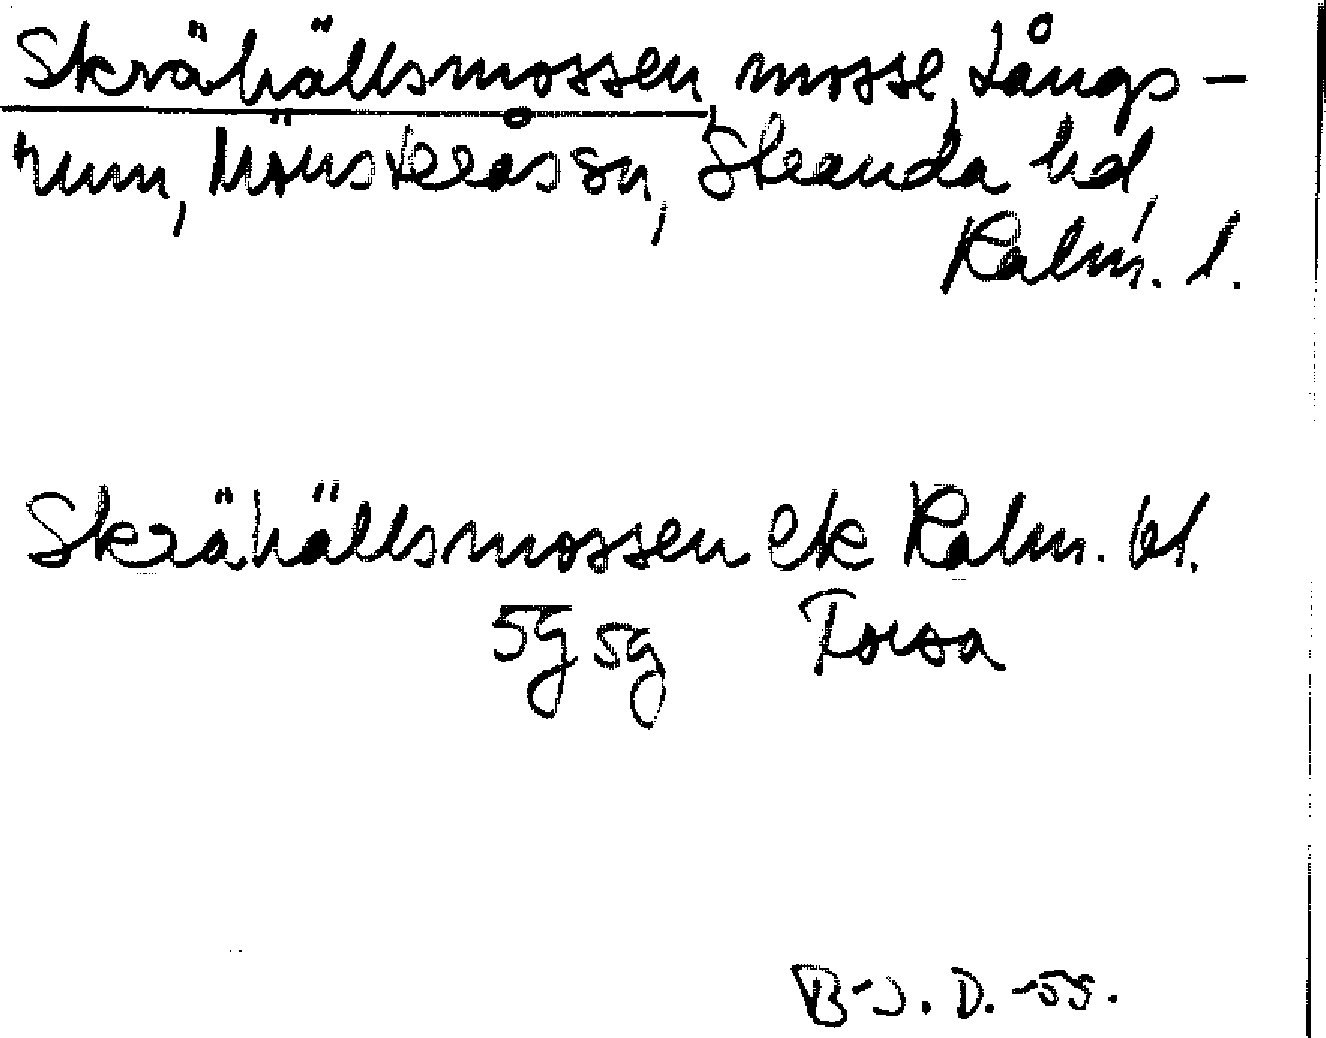 Skrähällsmossen, mosse, Långs-
rum, Mönsterås sn, Stranda hd,
Kalm. l.
Skrähällsmossen ek Kalm. bl.
5g 5g Forsa
B-J. D. -55.